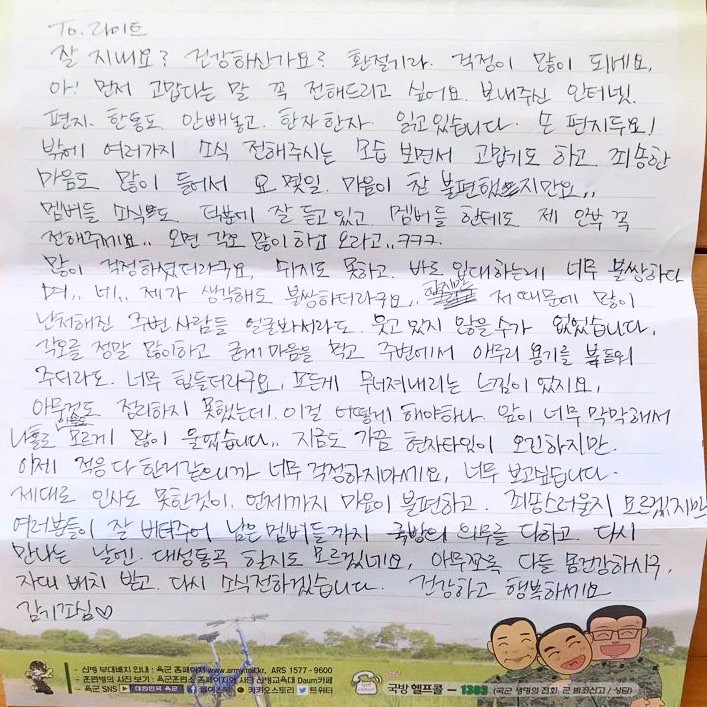 To. 라이트
잘 지내요? 건강하신가요? 환절기라. 걱정이 많이 되네요,
아! 먼저 고맙다는 말 꼭 전해드리고 싶어요. 보내주신 인터넷.
편지. 한통도 안빼놓고. 한자한자. 읽고있습니다. 손 편지두요!
밖에 여러가지 소식 전해주시는 모습 보면서 고맙기도 하고. 죄송한
마음도 많이 들어서 요 몇일. 마음이 참 불편했지만요..
멤버들 소식도. 덕분에 잘 듣고 있고. 멤버들 한테도 제 안부 꼭
전해주세요.. 오면 각오 많이 하고 오라고..ㅋㅋㅋ.
많이 걱정하셨더라구요, 쉬지도 못하고. 바로 입대하는데 너무 불쌍하다
며.. 네.. 제가 생각해도 불쌍하더라구요.. 하지만 저 때문에 많이
난처해진 주변 사람들 얼굴봐서라도. 웃고 있지 않을수가 없었습니다.
각오를 정말 많이하고 굳게 마음을 먹고 주변에서 아무리 용기를 북돋워
주더라도. 너무 힘들더라구요, 모든게 무너져내리는 느낌이 있지요.
아무것도 정리하지 못했는데. 이걸 어떻게 해야하나. 앞이 너무 막막해서
나홀로 모르게 많이 울었습니다.. 지금도 가끔 현자타임이 오긴하지만.
이제 적응 다 한거같으니까 너무 걱정하지마세요, 너무 보고싶습니다.
제대로 인사도 못한것이. 언제까지 마음이 불편하고. 죄송스러울지 모르겠지만
여러분들이 잘 버텨주어 남은 멤버들까지 국방의 의무를 다하고. 다시
만나는 날엔. 대성통곡 할지도 모르겠네요, 아무쪼록 다들 몸건강하시구,
자대 배치 받고. 다시 소식전하겠습니다. 건강하고 행복하세요
감기조심♡
- 신병 부대배치 안내 : 육군 홈페이지 www.army.mil.kr, ARS 1577-9600
- 훈련병의 사진 보기 : 육군훈련소 홈페이지와 사단 신병교육대 Daum카페
- 육군 SNS 대한민국 육군 페이스북 카카오스토리 트위터
국방 헬프콜 - 1303 (국군 생명의 전화, 군 범죄신고 / 상담)